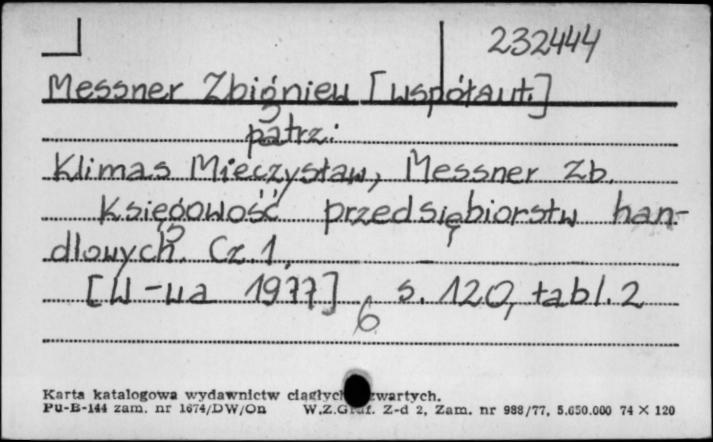 232444
Messner Zbigniew [współaut.]
patrz:
Klimas Mieczysław, Messner Zb.
Księgowość przedsiębiorstw han-
dlowych. Cz. 1.
[W-wa 1977] s. 120, tabl. 2
6
Karta katalogowa wydawnictw ciągłych zwartych.
Pu-B-144 zam. nr 1674/DW/On W.Z.Graf. Z-d 2, Zam. nr 988/77, 5.650.000 74 X 120